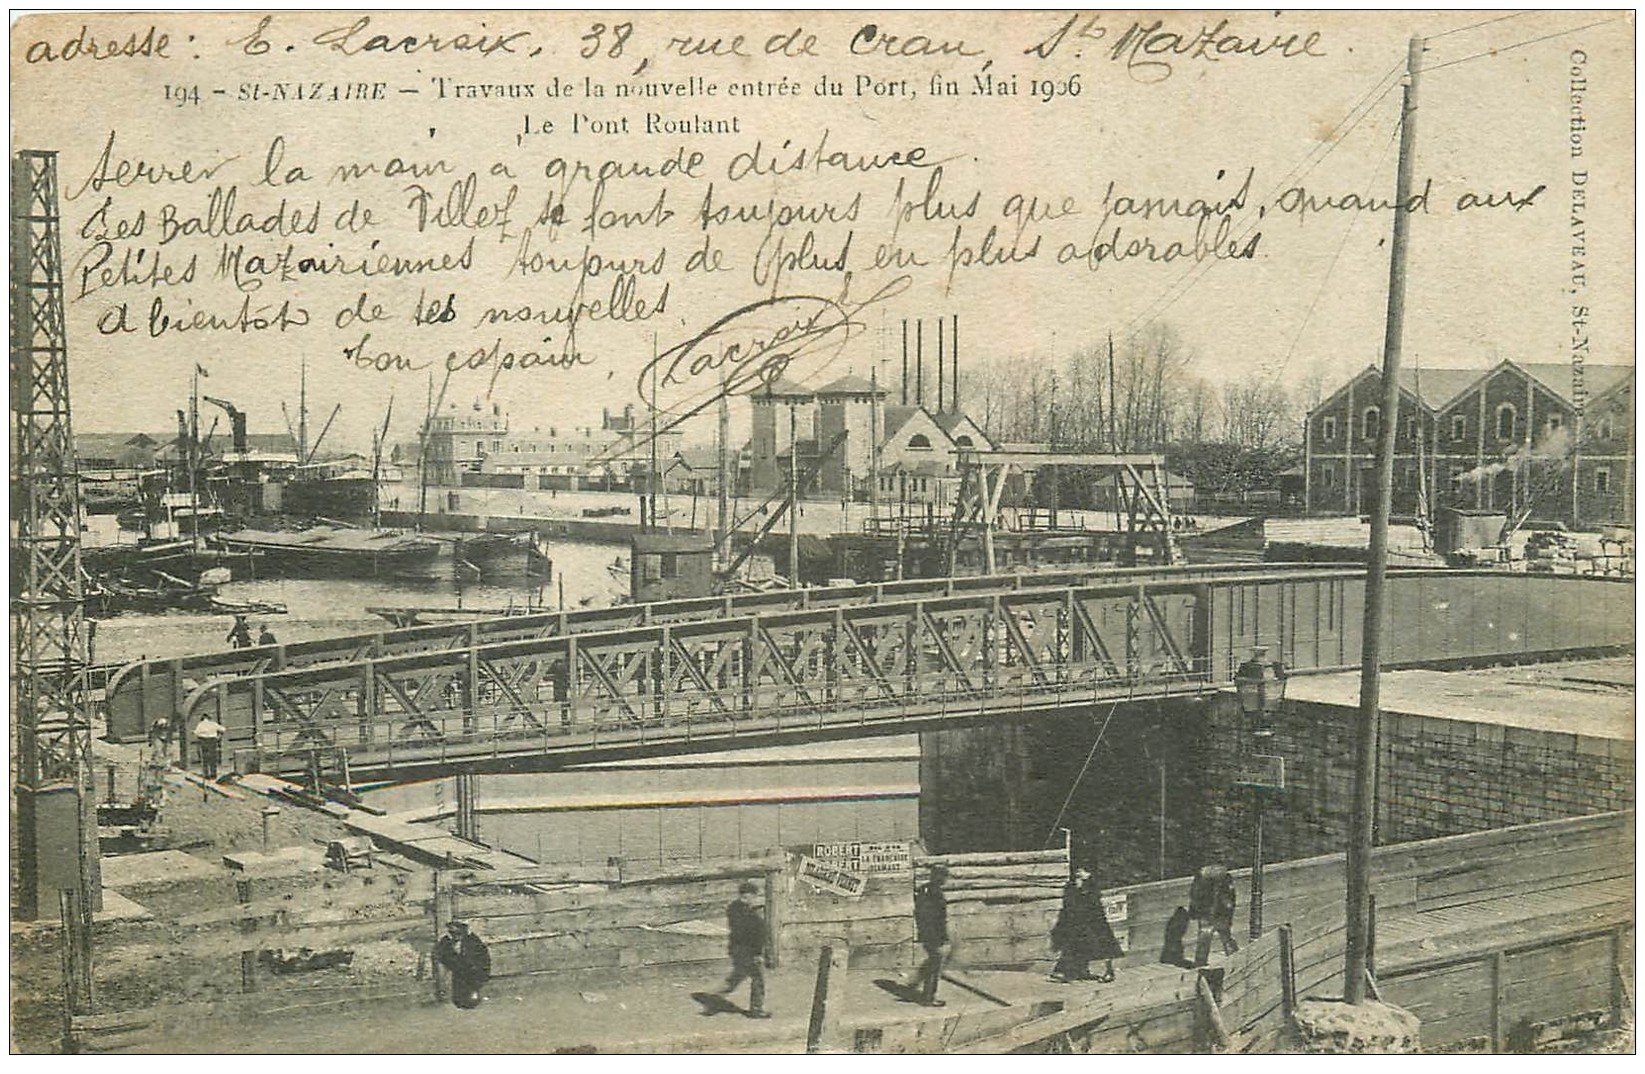 adresse : E. Lacroix, 38, rue de Cran, St Nazaire.
194 - St-NAZAIRE — Travaux de la nouvelle entrée du Port, fin Mai 1906
Le Pont Roulant
Serrer la main à grande distance.
Les Ballades de Villez se font toujours plus que jamais, quand aux
Petites Nazairiennes toujours de plus en plus adorables.
A bientot de tes nouvelles.
Ton copain,
Lacroix
Collection DELAVEAU, St-Nazaire
ROBERT
LA FRANÇAISE